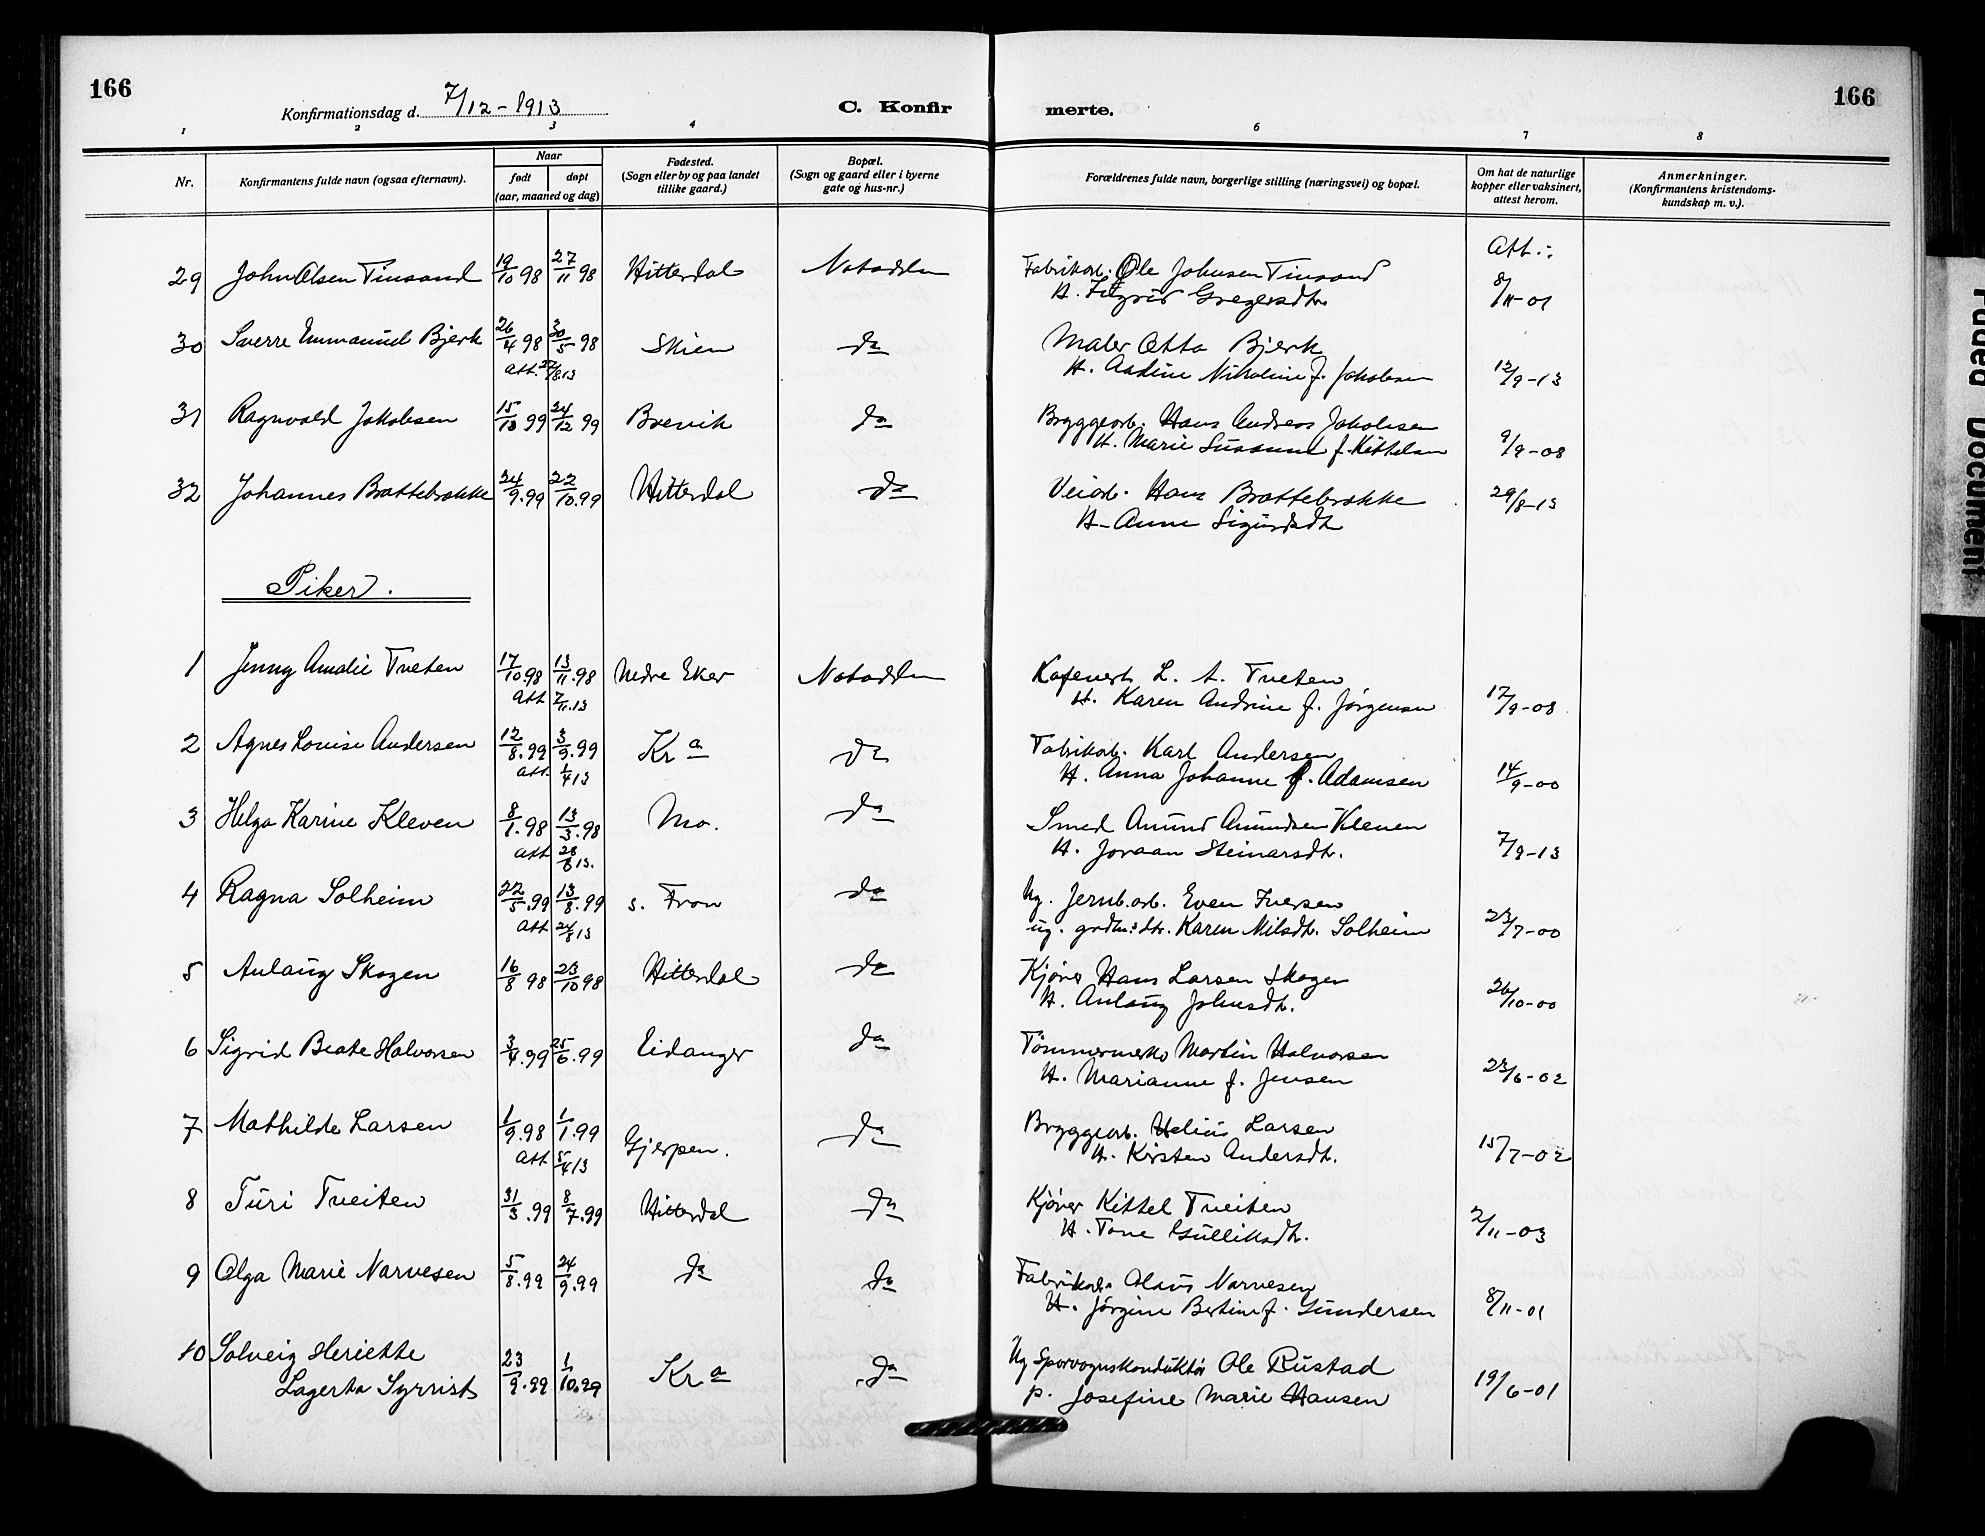 166
Konfirmationsdag d. 7/12 - 1913
C. Konfir
merte.
166
1 2 3 4 6 7 8
Nr.
Konfirmantens fulde navn (ogsaa efternavn).
Naar
født
døpt
(aar, maaned og dag)
Fødested.
(Sogn eller by og paa landet
tillike gaard.)
Bopæl.
(Sogn og gaard eller i byerne
gate og hus-nr.)
Forældrenes fulde navn, borgerlige stilling (næringsvei) og bopæl.
Om hat de naturlige
kopper eller vaksinert,
attest herom.
Anmerkninger.
(Konfirmantens kristendoms-
kundskap m. v.).
Att:
29 John Olsen Tinsand 19/10 98 27/11 98 Hitterdal Notodden Fabrikarb. Ole Johnsen Tinsand
H. Ingrid Gregersdtr. 8/11-01
30 Sverre Emmanuel Bjerk 26/4 98 30/5 98 Skien do Maler Otto Bjerk
Att. 27/8 13 H. Andine Nikoline f. Jakobsen 12/9-13
31 Ragnvald Jakobsen 15/10 99 24/12 99 Brevik do Bryggearb. Hans Andreas Jakobsen
H. Marie Susanne f. Kittelsen 9/9-08
32 Johannes Brattebrække 24/9.99 22/10.99 Hitterdal do Veiarb. Hans Brattebrække 29/8-13
H. Anne Sigurdsdtr
Piker.
1 Jenny Amalie Tveten 17/10.98 13/11.98 Nedre Eker Notodden Kafevert L. A. Tveten
Att 7/11.13 H. Karen Andrine f. Jørgensen 17/9-08
2 Agnes Louise Andersen 12/8.99 3/9.99 Kra do Fabrikarb. Karl Andersen
Att. 1/4 13 H. Anna Johanne f. Adamsen 14/9-00
3 Helga Karine Kleven 8/1.98 13/3.98 Mo. do Smed Amund Amundsen Kleven
Att 28/8 13. H. Joraan Steinarsdtr. 7/9-13
4 Ragna Solheim 22/5.99 13/8.99 s. Fron do Ug. Jernb.arb. Even Iversen
Att 24/8 13 ug. grdm.s dtr. Karen Nilsdtr. Solheim 23/7-00
5 Aulaug Skogen 16/8 98 23/10 98 Hitterdal do Kjører Hans Larsen Skogen
H. Aulaug Johnsdtr. 26/10-00
6 Sigrid Beate Halvorsen 3/4.99 25/6.99 Eidanger do Tømmermand Martin Halvorsen
H. Marianne f. Jensen 23/6-02
7 Mathilde Larsen 1/9.98 1/1.99 Gjerpen. do Bryggearb. Helius Larsen
Att 5/4 13 H. Kirsten Andersdtr. 15/7-02
8 Turi Tveiten 31/3.99 8/7.99 Hitterdal do Kjører Kittel Tveiten
H. Tone Gulliksdtr. 2/11-03
9 Olga Marie Narvesen 5/8.99 24/9.99 do do Fabrikarb. Olaus Narvesen
H. Jørgine Bertine f. Gundersen 8/11-01
10 Solveig Heriette 23/9.99 1/10.99 Kra do Ug Sporvognskonduktør Ole Rustad
Lagerta Syrrist p. Josefine Marie Hansen 19/6-01